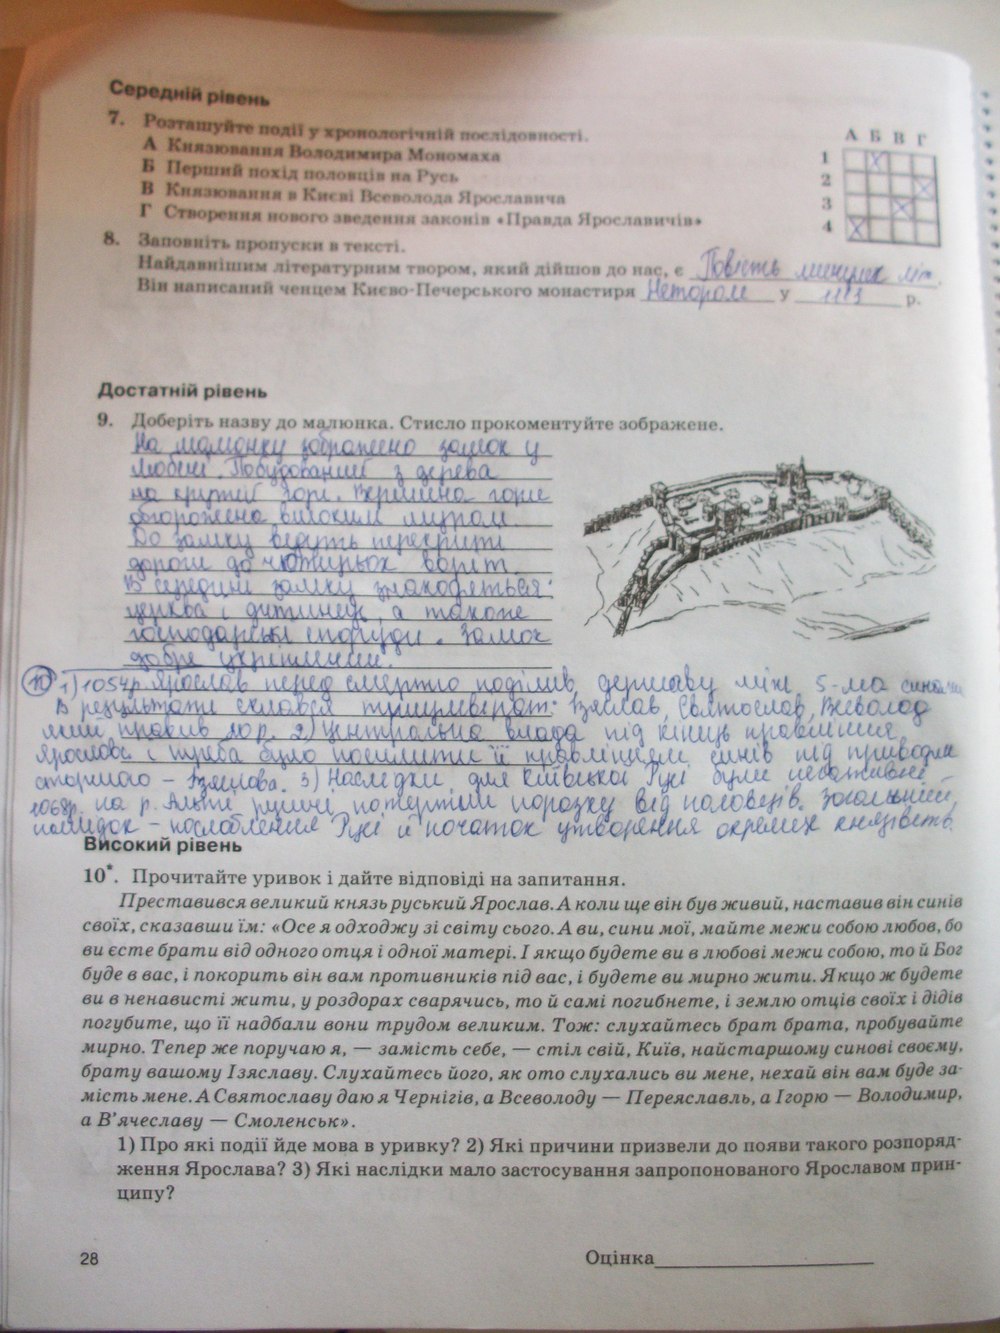 Середній рівень
7. Розташуйте події у хронологічній послідовності.
А Князювання Володимира Мономаха
Б Перший похід половців на Русь
В Князювання в Києві Всеволода Ярославича
Г Створення нового зведення законів «Правда Ярославичів»
А Б В Г
1 X
2 X
3 X
4 X
8. Заповніть пропуски в тексті.
Найдавнішим літературним твором, який дійшов до нас, є Повість минулих літ.
Він написаний ченцем Києво-Печерського монастиря Нестором у 1113 р.
Достатній рівень
9. Доберіть назву до малюнка. Стисло прокоментуйте зображене.
На малюнку зображено замок у
Любечі. Побудований з дерева
на крутій горі. Вершина гори
обгорожена високим муром
До замку ведуть перекриті
дороги до чотирьох воріт.
В середині замку знаходяться:
церква і дитинець, а також
господарські споруди. Замок
добре укріплений.
10 1) 1054р. Ярослав перед смертю поділив державу між 5-ма синами
В результаті склався тріумвірат: Ізяслав, Святослав, Всеволод
який правив 2) Центральна влада під кінець правління
Ярослава і треба було посилити її правлінням синів під приводом
старшого – Ізяслава. 3) Наслідки для Київської Русі були негативні –
1068р. на р. Альті русичі потерпіли поразку від половців. Загальний
наслідок – послаблення Русі й початок утворення окремих князівств.
Високий рівень
10*. Прочитайте уривок і дайте відповіді на запитання.
Преставився великий князь руський Ярослав. А коли ще він був живий, наставив він синів
своїх, сказавши їм: «Осе я одходжу зі світу сього. А ви, сини мої, майте межи собою любов, бо
ви єсте брати від одного отця і одної матері. І якщо будете ви в любові межи собою, то й Бог
буде в вас, і покорить він вам противників під вас, і будете ви мирно жити. Якщо ж будете
ви в ненависті жити, у роздорах сварячись, то й самі погибнете, і землю отців своїх і дідів
погубите, що її надбали вони трудом великим. Тож: слухайтесь брат брата, пробувайте
мирно. Тепер же поручаю я, — замість себе, — стіл свій, Київ, найстаршому синові своєму,
брату вашому Ізяславу. Слухайтесь його, як ото слухались ви мене, нехай він вам буде за-
мість мене. А Святославу даю я Чернігів, а Всеволоду — Переяславль, а Ігорю — Володимир,
а В'ячеславу — Смоленськ».
1) Про які події йде мова в уривку? 2) Які причини призвели до появи такого розпоряд-
ження Ярослава? 3) Які наслідки мало застосування запропонованого Ярославом прин-
ципу?
28
Оцінка